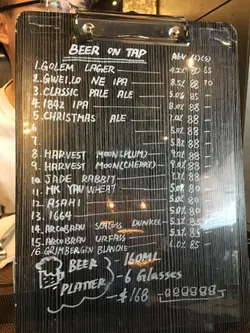 BEER ON TAP ABV ($)
1. GOLEM LAGER 4.2% 80 65
2. GWEILO NE IPA 8.5% 88
3. CLASSIC PALE ALE 88
4. 1842 IPA 88
5. CHRISTMAS ALE 88
6
7
8. HARVEST MOON (PLUM) 9% 88
9. HARVEST MOON (CHERRY) 9% 88
10 JADE RABBIT 88
11. HK YAU WHEAT 80
12 ASAHI 5.0% 80
13. 1664 80
14. ARCOBRAU SCHLOSS DUNKEL 85
15. ARCOBRAU URFASS 85
16. GRIMBERGEN BLANCHE 6.0% 85
BEER PLATTER
160ML
6 GLASSES
$168